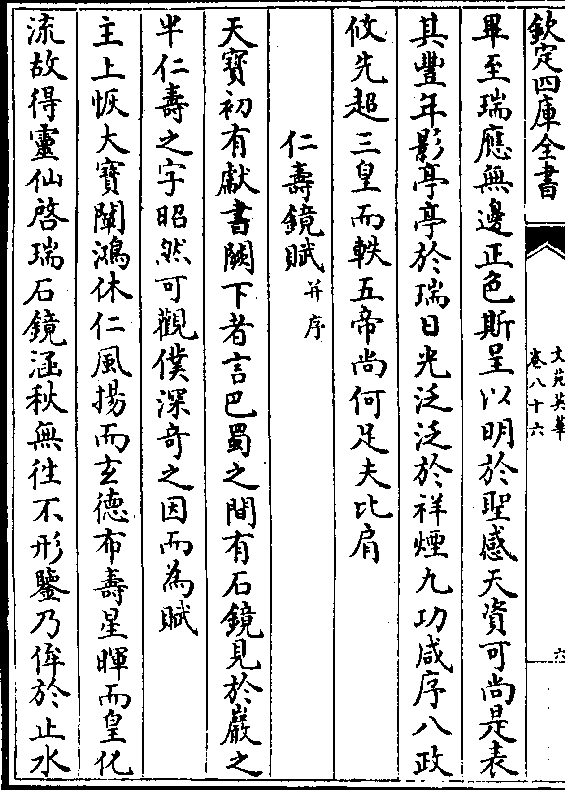 欽定四庫全書
文苑英華
卷八十六
六
畢至瑞應無邊正色斯呈以明於聖感天資可尚是表
其豐年影亭亭於瑞日光泛泛於祥煙九功咸序八政
攸先超三皇而軼五帝尚何足夫比肩
仁壽鏡賦并序
天寶初有獻書闕下者言巴蜀之間有石鏡見於巖之
半仁壽之字昭然可觀僕深奇之因而為賦
主上恢大寶闡鴻休仁風揚而玄德布壽星暉而皇化
流故得靈仙啓瑞石鏡涵秋無徃不形鑒乃侔於止水